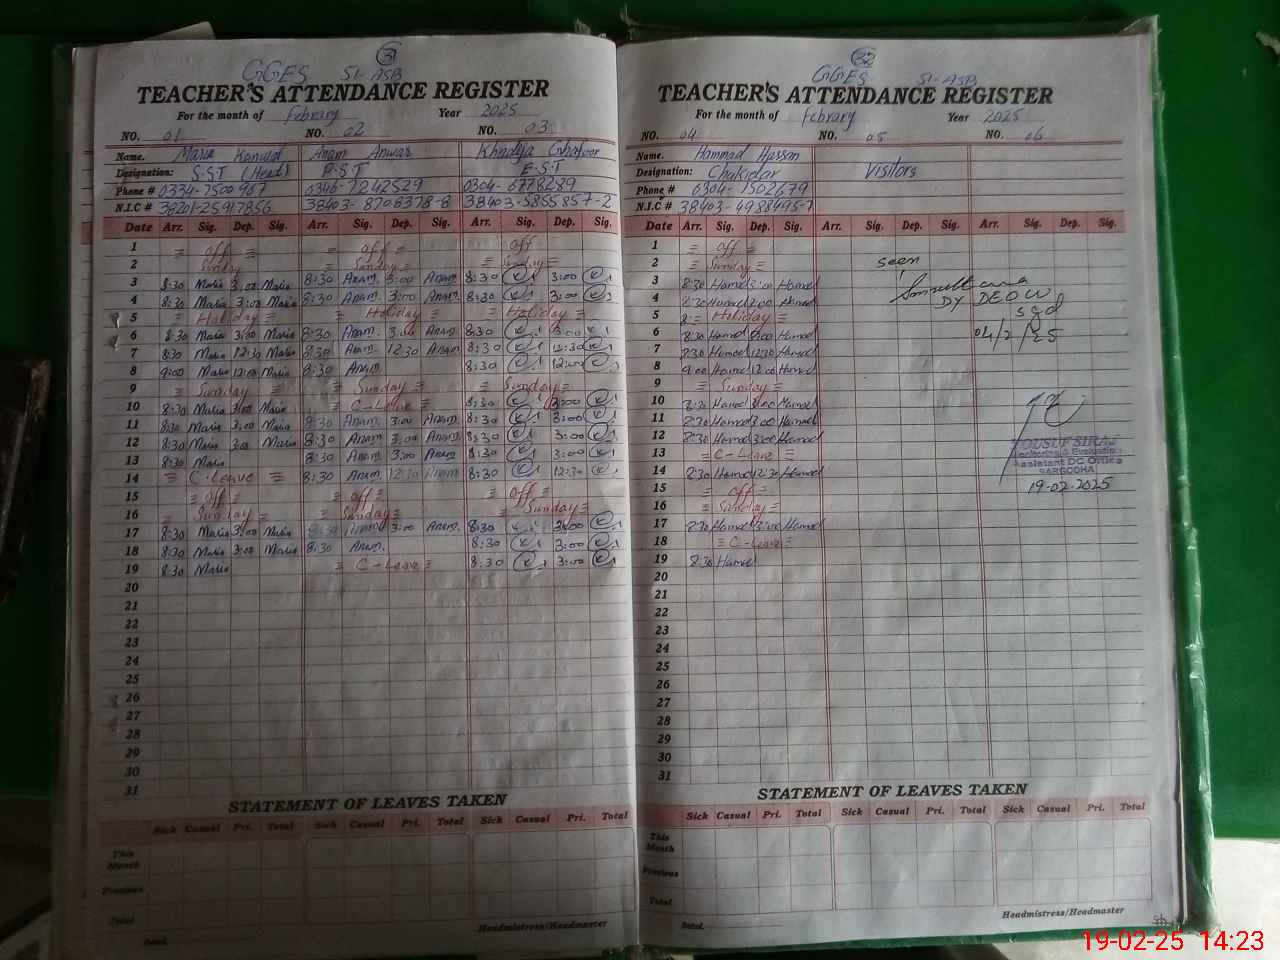 31
GGES 51-ASB
TEACHER'S ATTENDANCE REGISTER
For the month of Febrary Year 2025
NO. 01 NO. 02 NO. 03
Name. Maria Kanwal Anam Anwar Khadija Ghafoor
Designation: S.S.T (Head) P.S.T E.S.T
Phone # 0334-7500967 0346-7242529 0304-6778289
N.I.C # 38403-8708378-8 38403-5855857-2
Date Arr. Sig. Dep. Sig. Arr. Sig. Dep. Sig. Arr. Sig. Dep. Sig.
1 = off = = off = off
2 Sunday = Sunday = = Sunday =
3 8:30 Maria 3:00 Maria 8:30 Anam 3:00 Anam 8:30 3:00
4 8:30 Maria 3:00 Maria 8:30 Anam 3:00 Anam 8:30 3:00
5 = Holiday = = Holiday = = Holiday =
6 8:30 Maria 3:00 Maria 8:30 Anam 3:00 Anam 8:30 3:00
7 8:30 Maria 12:30 Maria 8:30 Anam 12:30 Anam 8:30 12:30
8 9:00 Maria 12:00 Maria 8:30 Anam 8:30 12:00
9 = Sunday = = Sunday = = Sunday =
10 8:30 Maria 3:00 Maria = C-Leave = 8:30 3:00
11 8:30 Maria 3:00 Maria 8:30 Anam 3:00 Anam 8:30 3:00
12 8:30 Maria 3:00 Maria 8:30 Anam 3:00 Anam 8:30 3:00
13 8:30 Maria 8:30 Anam 3:00 Anam 8:30 3:00
14 = C-Leave = 8:30 Anam 12:30 Anam 8:30 12:30
15 = off = = off = = off =
16 = Sunday = = Sunday = = Sunday =
17 8:30 Maria 3:00 Maria 3:00 Anam 8:30 3:00
18 8:30 Maria 3:00 Maria 8:30 Anam 8:30 3:00
19 8:30 Maria = C-Leave = 8:30 3:00
20
21
22
23
24
25
26
27
28
29
30
31
STATEMENT OF LEAVES TAKEN
Sick Casual Pri. Total Sick Casual Pri. Total Sick Casual Pri. Total
This Month
Previous
Total
Headmistress/Headmaster
32
GGES 51-ASB
TEACHER'S ATTENDANCE REGISTER
For the month of Febrary Year 2025
NO. 04 NO. 05 NO. 06
Name. Hammad Hassan
Designation: Chokidar Visitors
Phone # 0304-7502679
N.I.C # 38403-4988495-7
Date Arr. Sig. Dep. Sig. Arr. Sig. Dep. Sig. Arr. Sig. Dep. Sig.
1 = off =
2 = Sunday = seen
3 8:30 Hamad 3:00 Hamad
4 8:30 Hamad 3:00 Hamad DY DEO W
5 = Holiday = sgd
6 8:30 Hamad 3:00 Hamad 04/2/25
7 8:30 Hamad 12:30 Hamad
8 9:00 Hamad 12:00 Hamad
9 = Sunday =
10 8:30 Hamad 3:00 Hamad
11 8:30 Hamad 3:00 Hamad
12 8:30 Hamad 3:00 Hamad YOUSUF SIRAJ
13 = C-Leave = Monitoring & Evaluation
14 8:30 Hamad 12:30 Hamad Assistant DC Office
SARGODHA
15 = off = 19-02-2025
16 = Sunday =
17 8:30 Hamad 3:00 Hamad
18 = C-Leave =
19 8:30 Hamad
20
21
22
23
24
25
26
27
28
29
30
31
STATEMENT OF LEAVES TAKEN
Sick Casual Pri. Total Sick Casual Pri. Total Sick Casual Pri. Total
This Month
Previous
Total
Headmistress/Headmaster
19-02-25 14:23